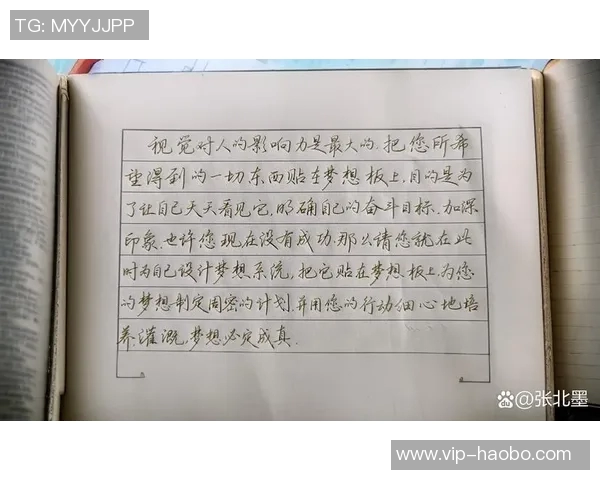 TG: MYYJJPP
视觉对人的影响力是最大的.把您所希
望得到的一切东西贴在梦想板上.目的是为
了让自己天天看见它,明确自己的奋斗目标.加深
印象.也许您现在没有成功.那么请您就在此
时为自己设计梦想系统,把它贴在梦想板上.为您
的梦想制定周密的计划.并用您的行动细心地培
养灌溉,梦想必定成真.
@张北墨
www.vip-haobo.com